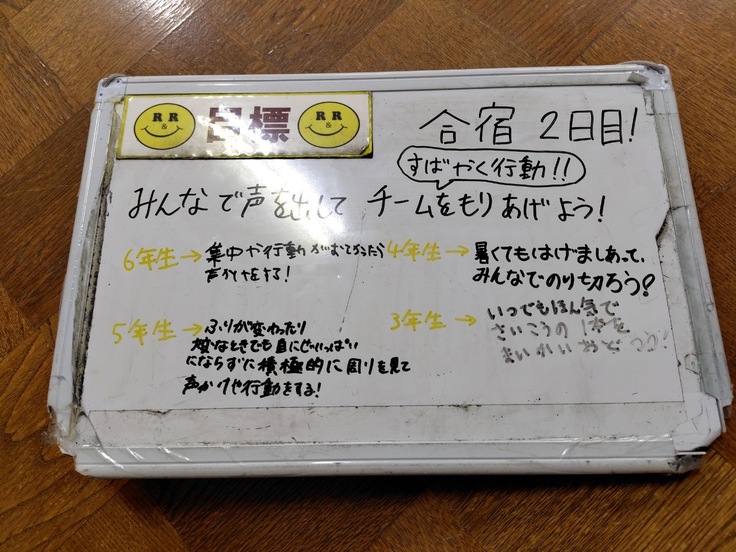 R R
&
目標
R R
&
合宿 2日目!
すばやく行動!!
みんなで声を出して チームをもりあげよう!
6年生→ 集中や行動が
声かけをする!
4年生→ 暑くてもはげましあって、
みんなでのり切ろう?
5年生→ ふりが変わったり
大変なときでも自分でいっぱい
にならずに積極的に周りを見て
声かけや行動をする!
3年生→ いつでもほん気で
さいこうの 1本を
まいかい